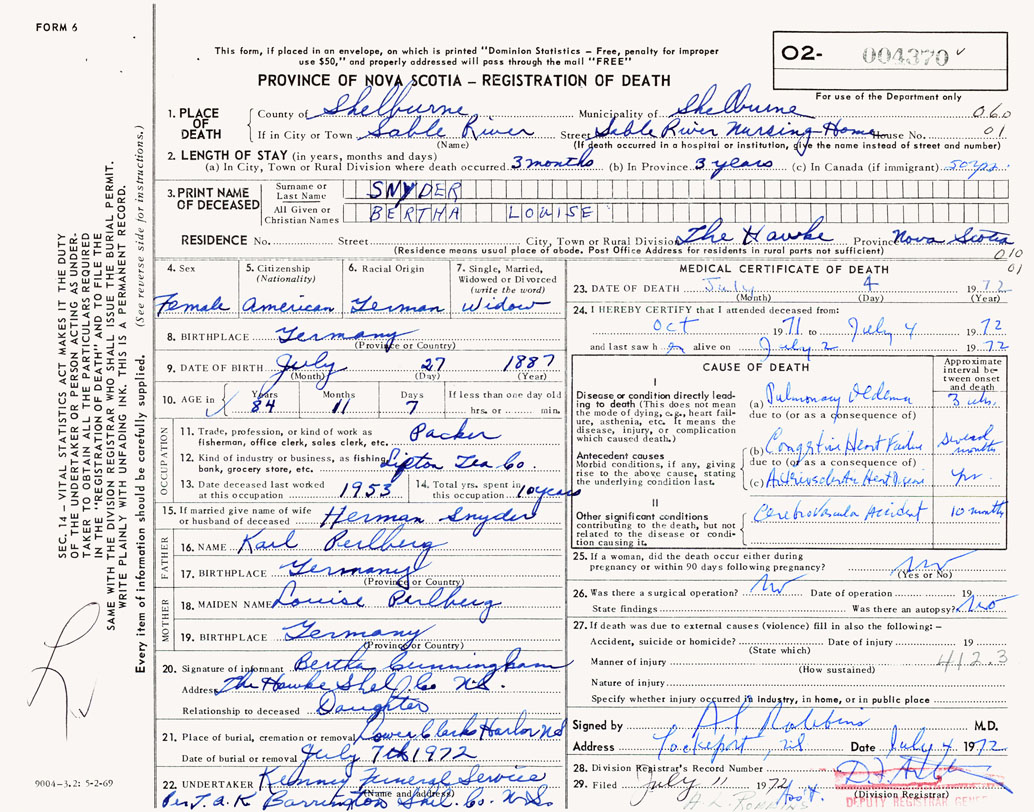 FORM 6
This form, if placed in an envelope, on which is printed "Dominion Statistics – Free, penalty for improper
use $50," and properly addressed will pass through the mail "FREE"
PROVINCE OF NOVA SCOTIA – REGISTRATION OF DEATH
O2- 004370
For use of the Department only
1. PLACE OF DEATH
County of Shelburne Municipality of Shelburne 060
If in City or Town Sable River Street Sable River Nursing Home House No. 01
(Name) (If death occurred in a hospital or institution, give the name instead of street and number)
2. LENGTH OF STAY (in years, months and days)
(a) In City, Town or Rural Division where death occurred 3 months (b) In Province 3 years (c) In Canada (if immigrant) 50 yrs.
3. PRINT NAME OF DECEASED
Surname or Last Name SNYDER
All Given or Christian Names BERTHA LOUISE
RESIDENCE No. Street City, Town or Rural Division The Hawke Province Nova Scotia
(Residence means usual place of abode. Post Office Address for residents in rural parts not sufficient) 010
01
4. Sex Female
5. Citizenship (Nationality) American
6. Racial Origin German
7. Single, Married, Widowed or Divorced (write the word) Widow
8. BIRTHPLACE Germany
(Province or Country)
9. DATE OF BIRTH July 27 1887
(Month) (Day) (Year)
10. AGE in Years Months Days If less than one day old
84 11 7 hrs. or min.
OCCUPATION
11. Trade, profession, or kind of work as
fisherman, office clerk, sales clerk, etc. Packer
12. Kind of industry or business, as fishing,
bank, grocery store, etc. Lipton Tea Co.
13. Date deceased last worked
at this occupation 1953
14. Total yrs. spent in
this occupation 10 years
15. If married give name of wife
or husband of deceased Herman Snyder
FATHER
16. NAME Karl Perlberg
17. BIRTHPLACE Germany
(Province or Country)
MOTHER
18. MAIDEN NAME Louise Perlberg
19. BIRTHPLACE Germany
(Province or Country)
20. Signature of informant Bertha Cunningham
Address The Hawke Shel. Co. N.S.
Relationship to deceased Daughter
21. Place of burial, cremation or removal Lower Clarks Harbor N.S
Date of burial or removal July 7th 1972
22. UNDERTAKER Funeral Service
(Name and address)
Barrington Shel. Co. N.S.
MEDICAL CERTIFICATE OF DEATH
23. DATE OF DEATH July 4 1972
(Month) (Day) (Year)
24. I HEREBY CERTIFY that I attended deceased from:
Oct 1971 to July 4 1972
and last saw h er alive on July 2 1972
CAUSE OF DEATH
Approximate interval between onset and death
I
Disease or condition directly leading to death (This does not mean the mode of dying, e.g., heart failure, asthenia, etc. It means the disease, injury, or complication which caused death.)
(a) Pulmonary Oedema 3 wks.
due to (or as a consequence of)
Antecedent causes
Morbid conditions, if any, giving rise to the above cause, stating the underlying condition last.
(b) Congestive Heart Failure Several months
due to (or as a consequence of)
(c) Heart Disease yr.
II
Other significant conditions
contributing to the death, but not related to the disease or condition causing it.
Cerebrovascular Accident 10 months
25. If a woman, did the death occur either during
pregnancy or within 90 days following pregnancy? No
(Yes or No)
26. Was there a surgical operation? No Date of operation 19
State findings Was there an autopsy? No
27. If death was due to external causes (violence) fill in also the following: –
Accident, suicide or homicide? Date of injury 19
(State which)
Manner of injury 412.3
(How sustained)
Nature of injury
Specify whether injury occurred in industry, in home, or in public place
Signed by Robbins M.D.
Address Lockeport, NS Date July 4 1972
28. Division Registrar's Record Number
29. Filed July 11 1972
(Division Registrar)
DEPUTY REGISTRAR GENERAL
SEC. 14 – VITAL STATISTICS ACT MAKES IT THE DUTY
OF THE UNDERTAKER OR PERSON ACTING AS UNDER-
TAKER TO OBTAIN ALL THE PARTICULARS REQUIRED
IN THE "REGISTRATION OF DEATH" AND TO FILE THE
SAME WITH THE DIVISION REGISTRAR WHO SHALL ISSUE THE BURIAL PERMIT.
WRITE PLAINLY WITH UNFADING INK. THIS IS A PERMANENT RECORD.
Every item of information should be carefully supplied. (See reverse side for instructions.)
9004-3.2: 5-2-69